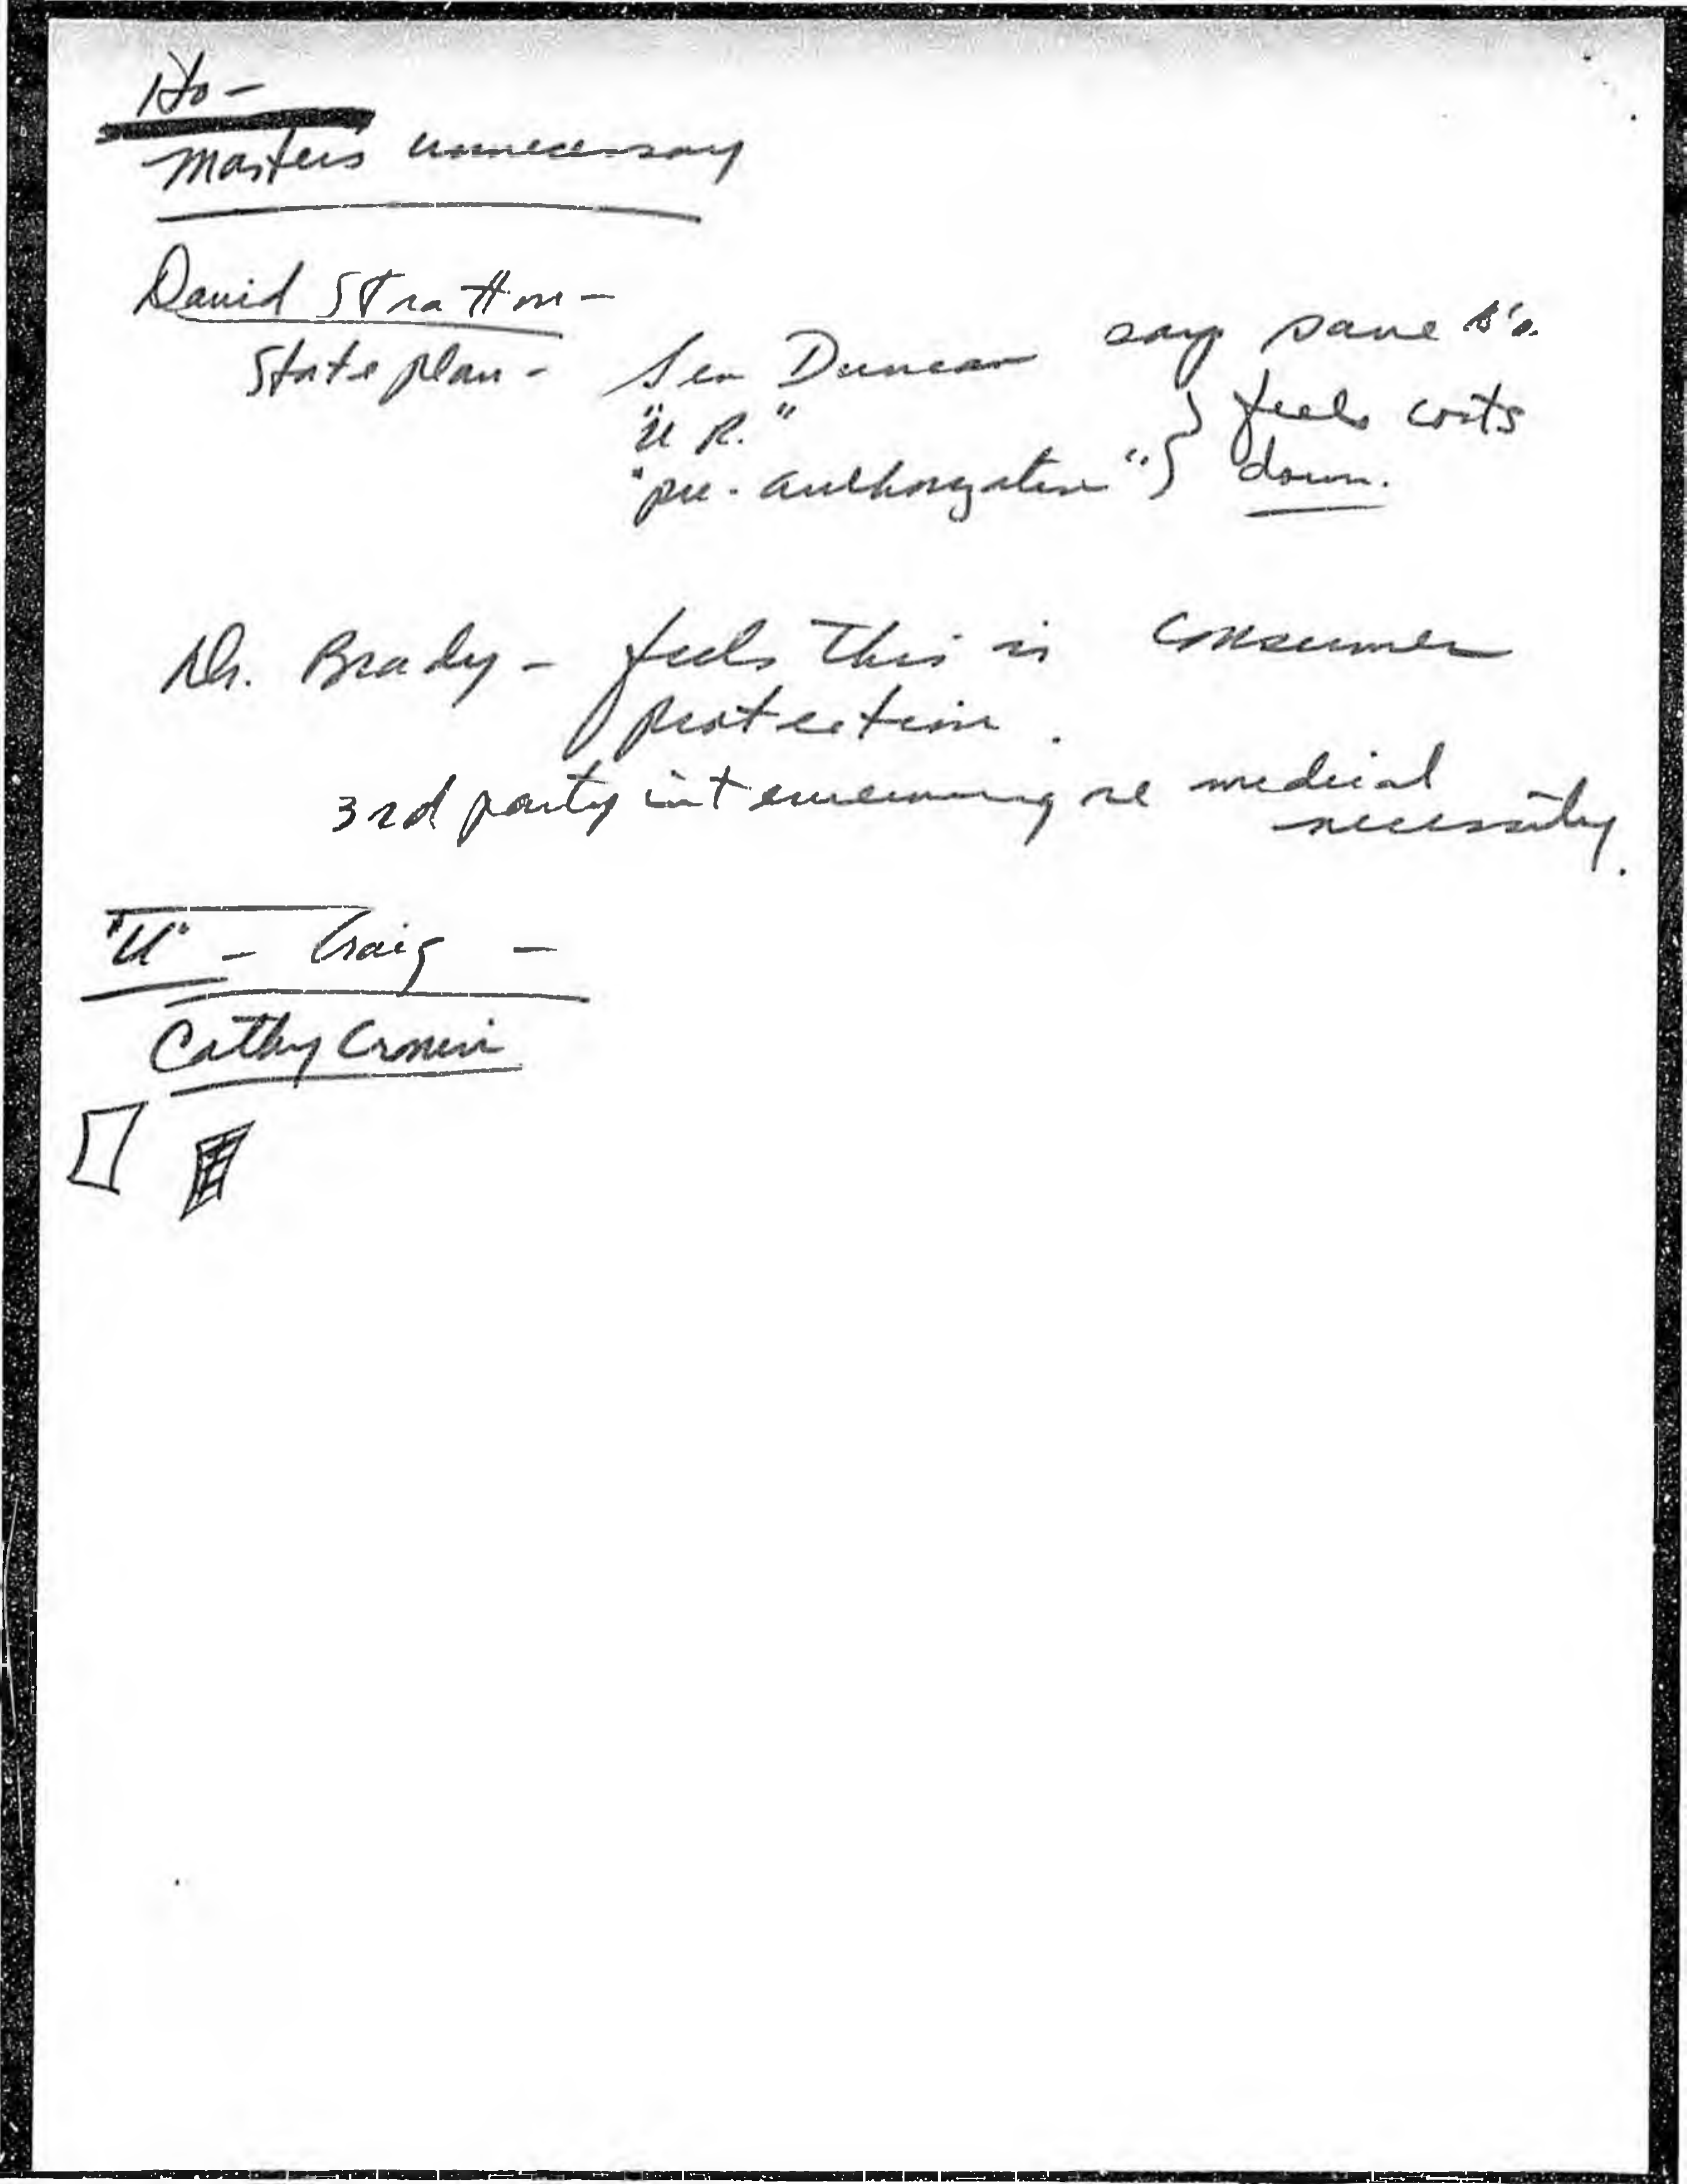 Masters unnecessary
David Stratton -
State plan - Sen Duncan say save $'s.
"U R." } feels costs
"pre-authorization" } down.
Dr. Brady - feels this is consumer
protection.
3rd party intervening re medical
necessity.
"U" - Craig -
Cathy Cronin